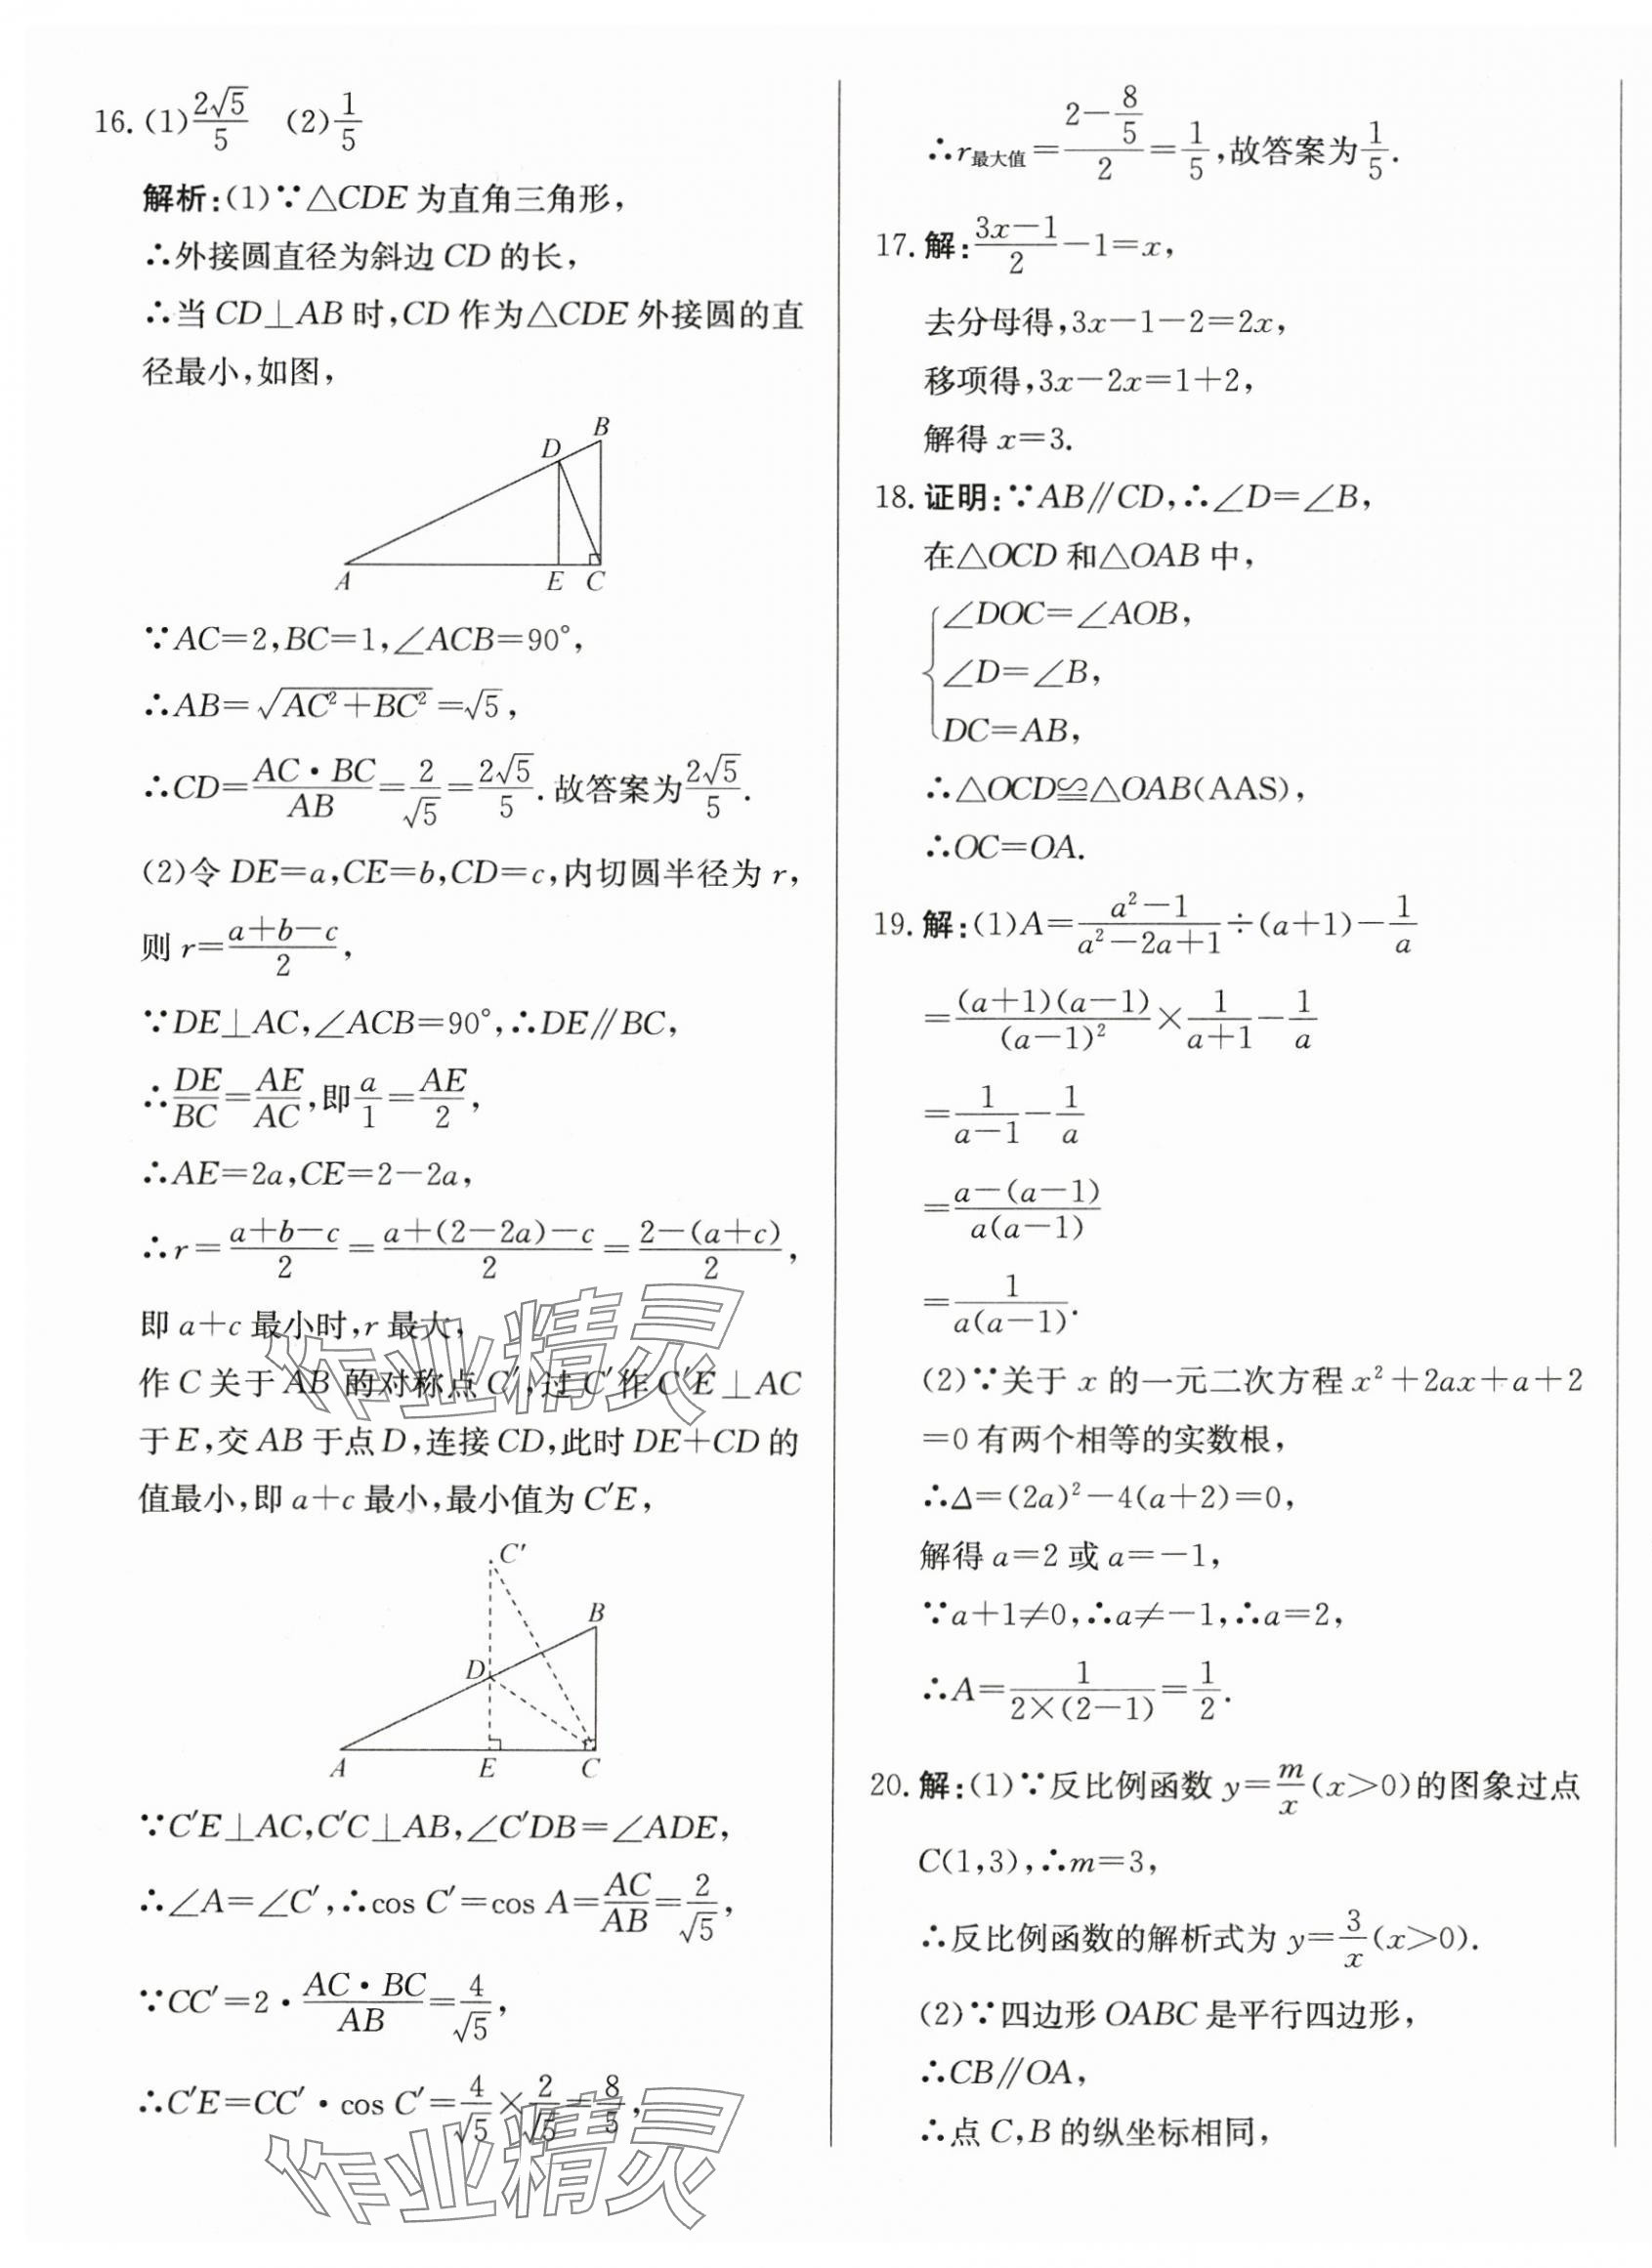 16. (1) 2√5/5 (2) 1/5
解析:(1)∵△CDE为直角三角形,
∴外接圆直径为斜边CD的长,
∴当CD⊥AB时,CD作为△CDE外接圆的直
径最小,如图,
B
D
A
E
C
∵AC=2,BC=1,∠ACB=90°,
∴AB=√(AC²+BC²)=√5,
∴CD=(AC·BC)/AB=2/√5=2√5/5.故答案为2√5/5.
(2)令DE=a,CE=b,CD=c,内切圆半径为r,
则r=(a+b-c)/2,
∵DE⊥AC,∠ACB=90°,∴DE∥BC,
∴DE/BC=AE/AC,即a/1=AE/2,
∴AE=2a,CE=2-2a,
∴r=(a+b-c)/2=(a+(2-2a)-c)/2=(2-(a+c))/2,
即a+c最小时,r最大,
作C关于AB的对称点C′,过C′作C′E⊥AC
于E,交AB于点D,连接CD,此时DE+CD的
值最小,即a+c最小,最小值为C′E,
C′
B
D
A
E
C
∵C′E⊥AC,C′C⊥AB,∠C′DB=∠ADE,
∴∠A=∠C′,∴cos C′=cos A=AC/AB=2/√5,
∵CC′=2·(AC·BC)/AB=4/√5,
∴C′E=CC′·cos C′=4/√5×2/√5=8/5,
∴r最大值=(2-8/5)/2=1/5,故答案为1/5.
17. 解:(3x-1)/2-1=x,
去分母得,3x-1-2=2x,
移项得,3x-2x=1+2,
解得x=3.
18. 证明:∵AB∥CD,∴∠D=∠B,
在△OCD和△OAB中,
{∠DOC=∠AOB,
∠D=∠B,
DC=AB,
∴△OCD≌△OAB(AAS),
∴OC=OA.
19. 解:(1)A=(a²-1)/(a²-2a+1)÷(a+1)-1/a
=((a+1)(a-1))/(a-1)²×1/(a+1)-1/a
=1/(a-1)-1/a
=(a-(a-1))/(a(a-1))
=1/(a(a-1)).
(2)∵关于x的一元二次方程x²+2ax+a+2
=0有两个相等的实数根,
∴Δ=(2a)²-4(a+2)=0,
解得a=2或a=-1,
∵a+1≠0,∴a≠-1,∴a=2,
∴A=1/(2×(2-1))=1/2.
20. 解:(1)∵反比例函数y=m/x(x>0)的图象过点
C(1,3),∴m=3,
∴反比例函数的解析式为y=3/x(x>0).
(2)∵四边形OABC是平行四边形,
∴CB∥OA,
∴点C,B的纵坐标相同,
作业精灵
作业精灵